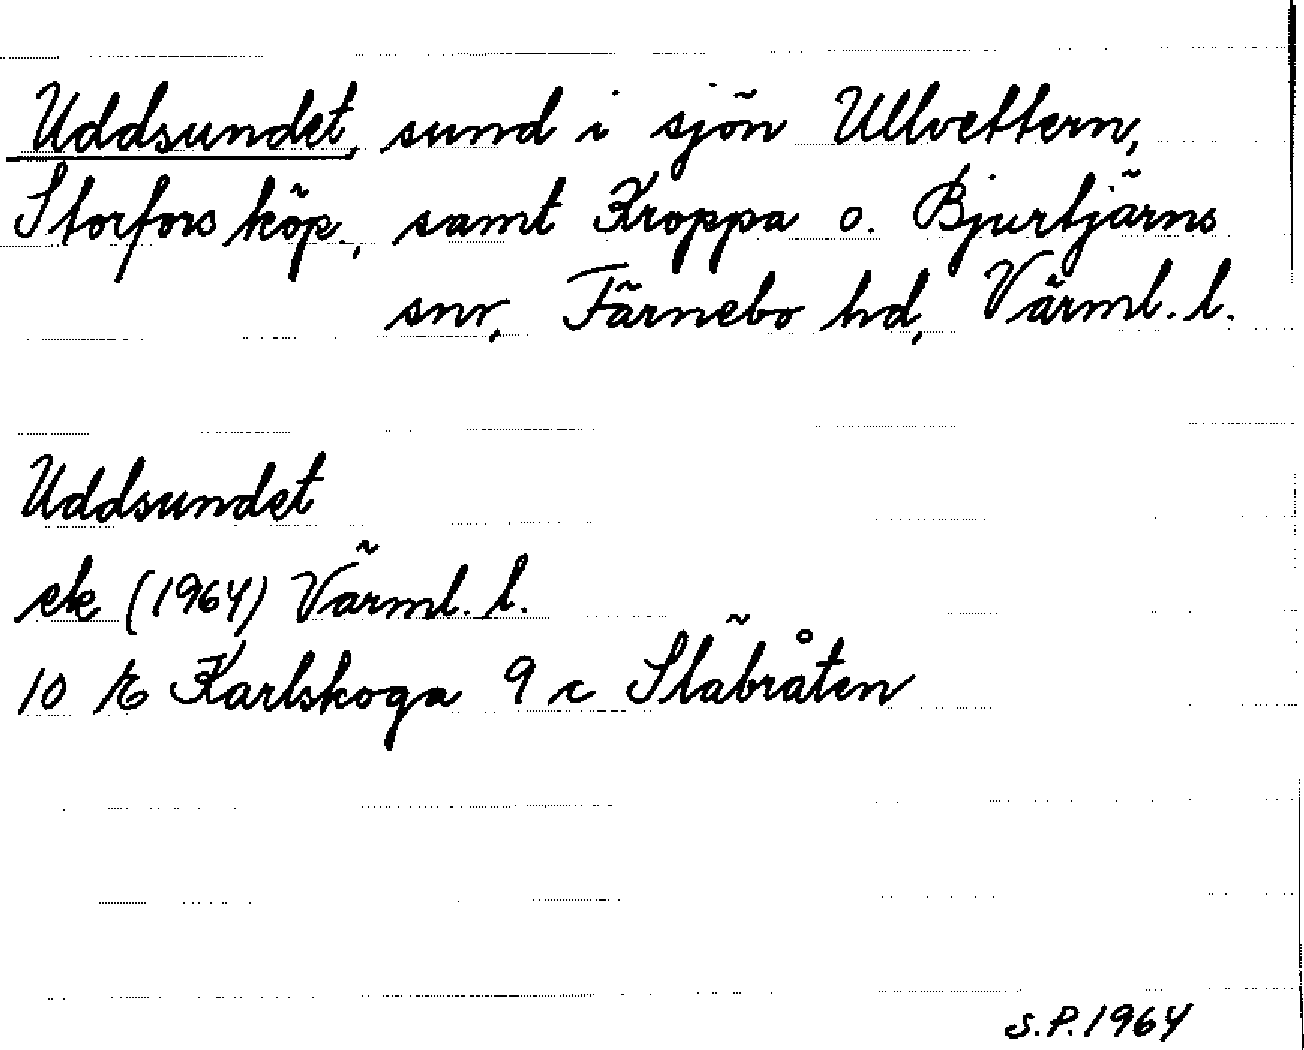 Uddsundet, sund i sjön Ullvettern,
Storfors köp., samt Kroppa o. Bjurtjärns
snr, Färnebo hd, Värml. l.
Uddsundet
ek (1964) Värml. l.
10 E Karlskoga 9 c Släbråten
S.P. 1964